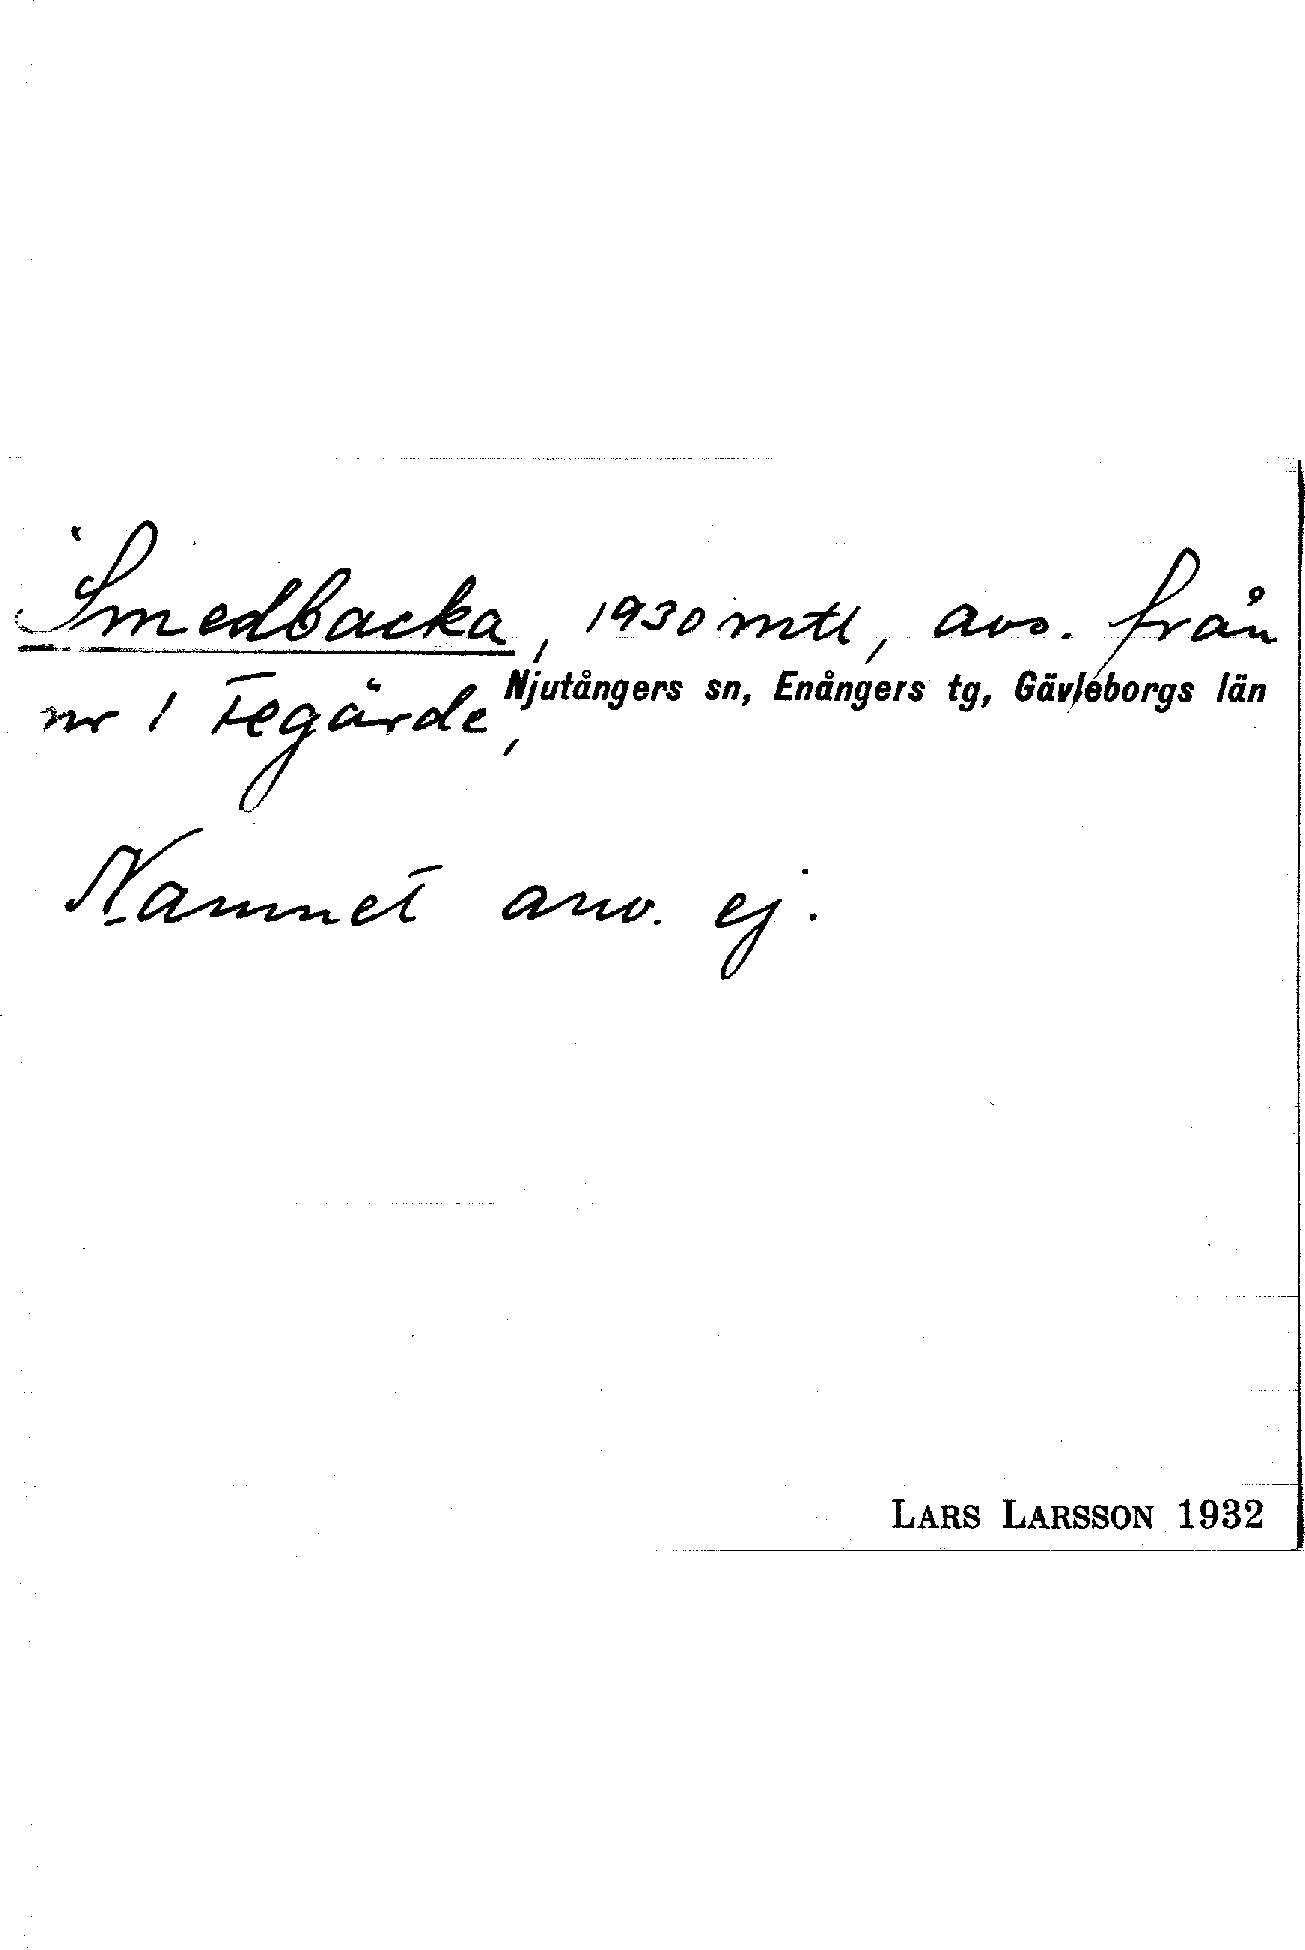 Smedbacka, 1930 mtl, avs. från
nr 1 Fegärde, Njutångers sn, Enångers tg, Gävleborgs län
Namnet anv. ej.
LARS LARSSON 1932